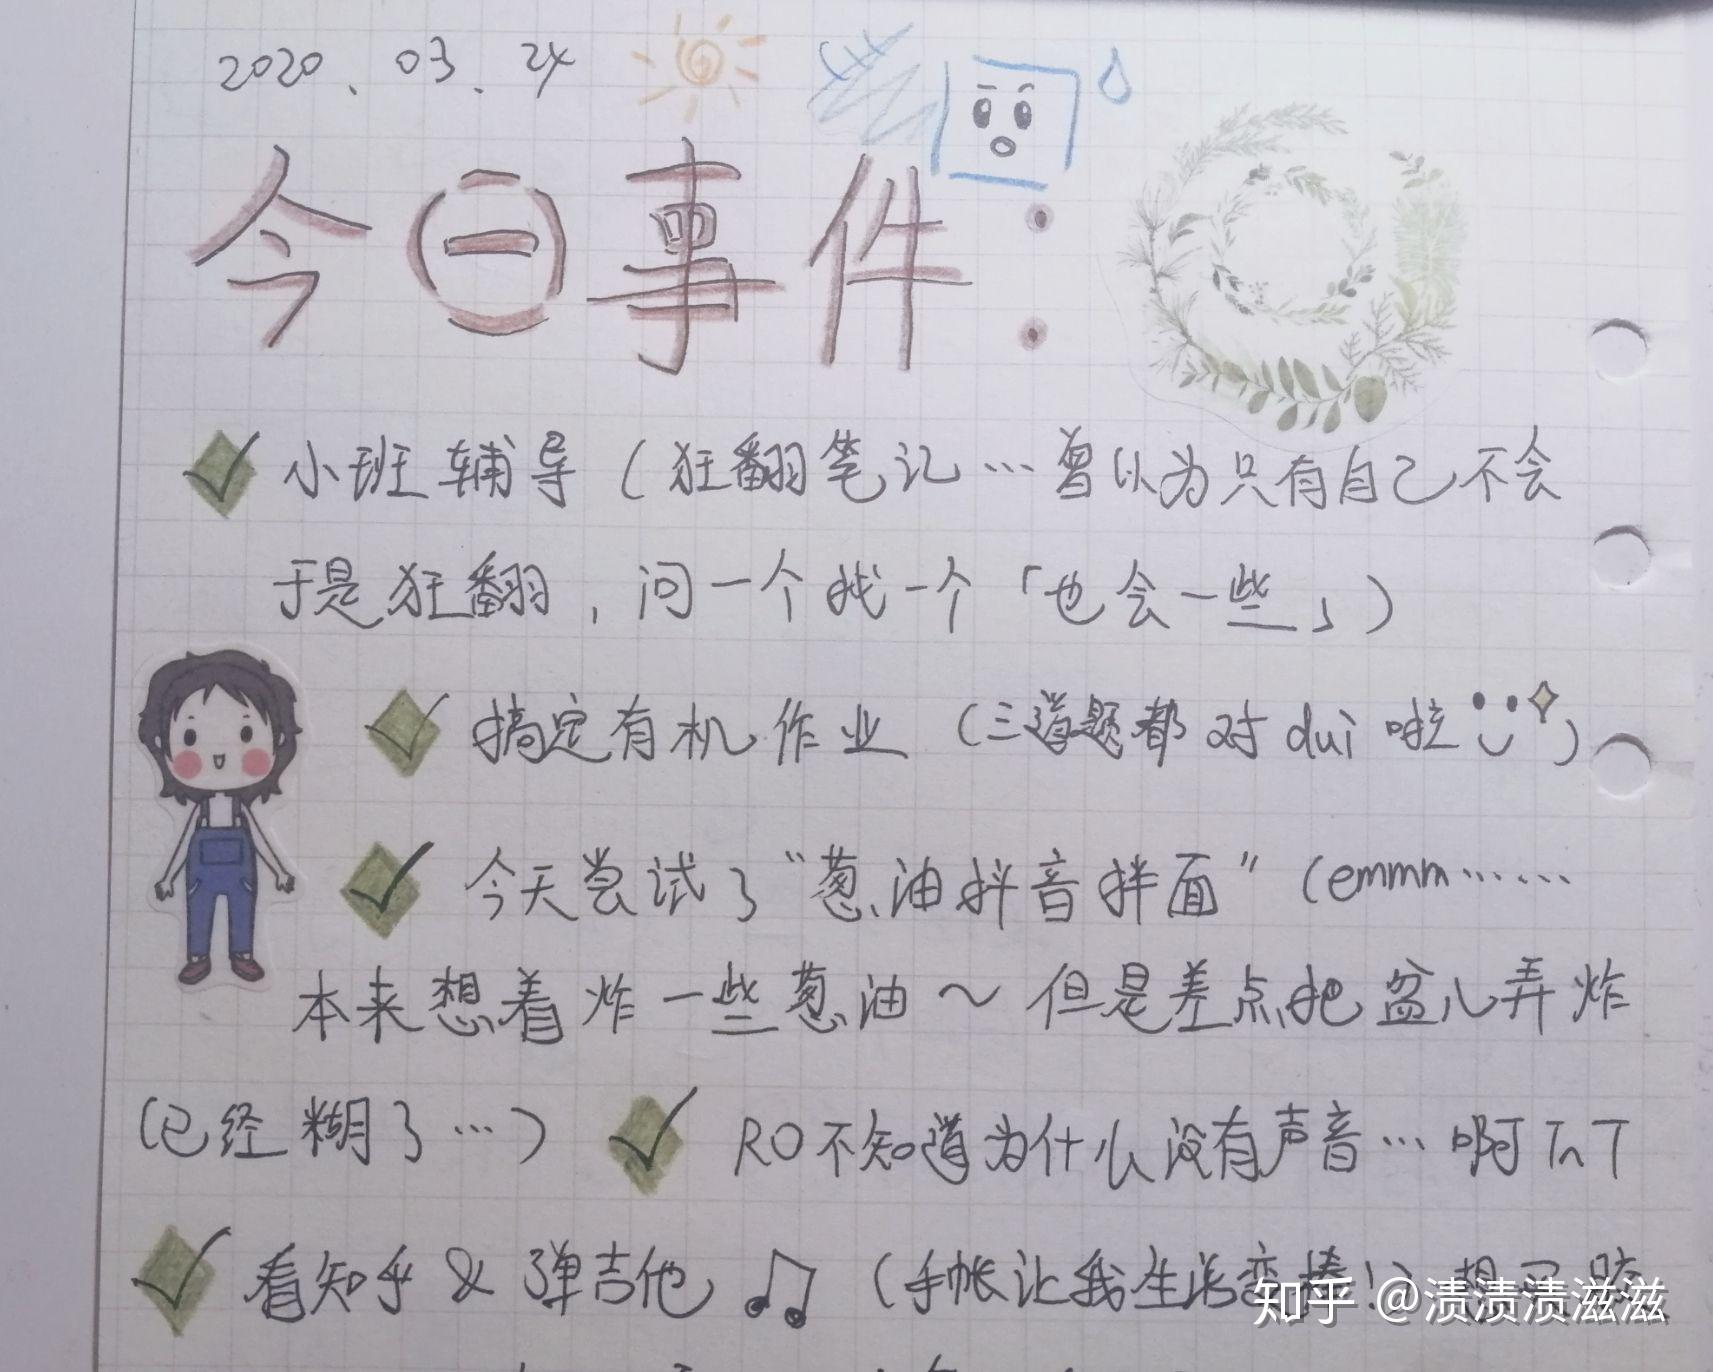 2020.03.24
今日事件：
小班辅导（狂翻笔记…曾以为只有自己不会
于是狂翻，问一个找一个「也会一些」）
搞定有机作业（三道题都对dui啦）
今天尝试了“葱油抖音拌面”（emmm……
本来想着炸一些葱油～但是差点把盆儿弄炸
（已经糊了…）
RO不知道为什么没有声音…啊TnT
看知乎&弹吉他♫（手帐让我生活变棒！）想买胶
知乎 @渍渍渍滋滋